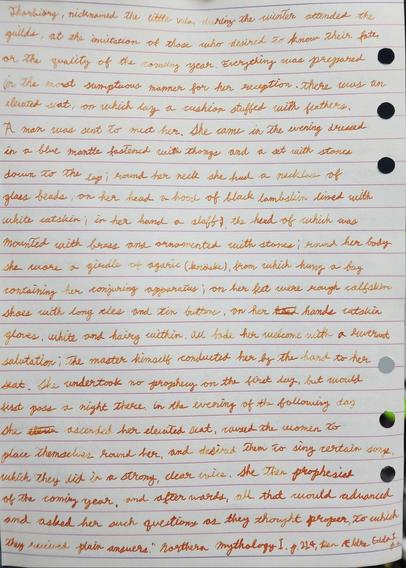 Thorbiorg, nicknamed the little vala, during the winter attended the
guilds, at the invitation of those who desired to know their fate,
or the quality of the coming year. Everything was prepared
in the most sumptuous manner for her reception. There was an
elevated seat, on which lay a cushion stuffed with feathers.
A man was sent to meet her. She came in the evening dressed
in a blue mantle fastened with thongs and a set with stones
down to the lap; round her neck she had a necklace of
glass beads, on her head a hood of black lambskin lined with
white catskin; in her hand a staff, the head of which was
mounted with brass and ornamented with stones; round her body
she wore a girdle of agaric (knöske), from which hung a bag
containing her conjuring apparatus; on her feet were rough calfskin
shoes with long ties and tin buttons, on her hands catskin
gloves, white and hairy within. All bade her welcome with a reverent
salutation; the master himself conducted her by the hand to her
seat. She undertook no prophecy on the first day, but would
first pass a night there. In the evening of the following day
she ascended her elevated seat, caused the women to
place themselves round her, and desired them to sing certain songs,
which they did in a strong, clear voice. She then prophesied
of the coming year, and afterwards, all that would advanced
and asked her such questions as they thought proper, to which
they received plain answers." Northern Mythology I. p. 214, Den Ældre Edda I.